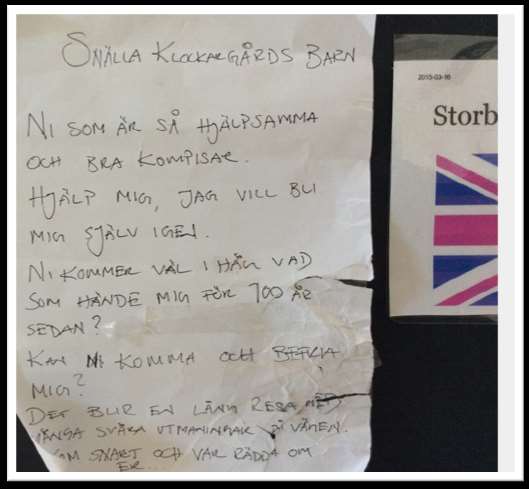 SNÄLLA KLOCKARGÅRDS BARN
NI SOM ÄR SÅ HJÄLPSAMMA
OCH BRA KOMPISAR.
HJÄLP MIG, JAG VILL BLI
MIG SJÄLV IGEN.
NI KOMMER VÄL I HÅG VAD
SOM HÄNDE MIG FÖR 700 ÅR
SEDAN?
KAN NI KOMMA OCH BEFRIA
MIG?
DET BLIR EN LÅNG RESA MED
MÅNGA SVÅRA UTMANINGAR PÅ VÄGEN.
KOM SNART OCH VAR RÄDDA OM
ER...
2015-03-16
Storb